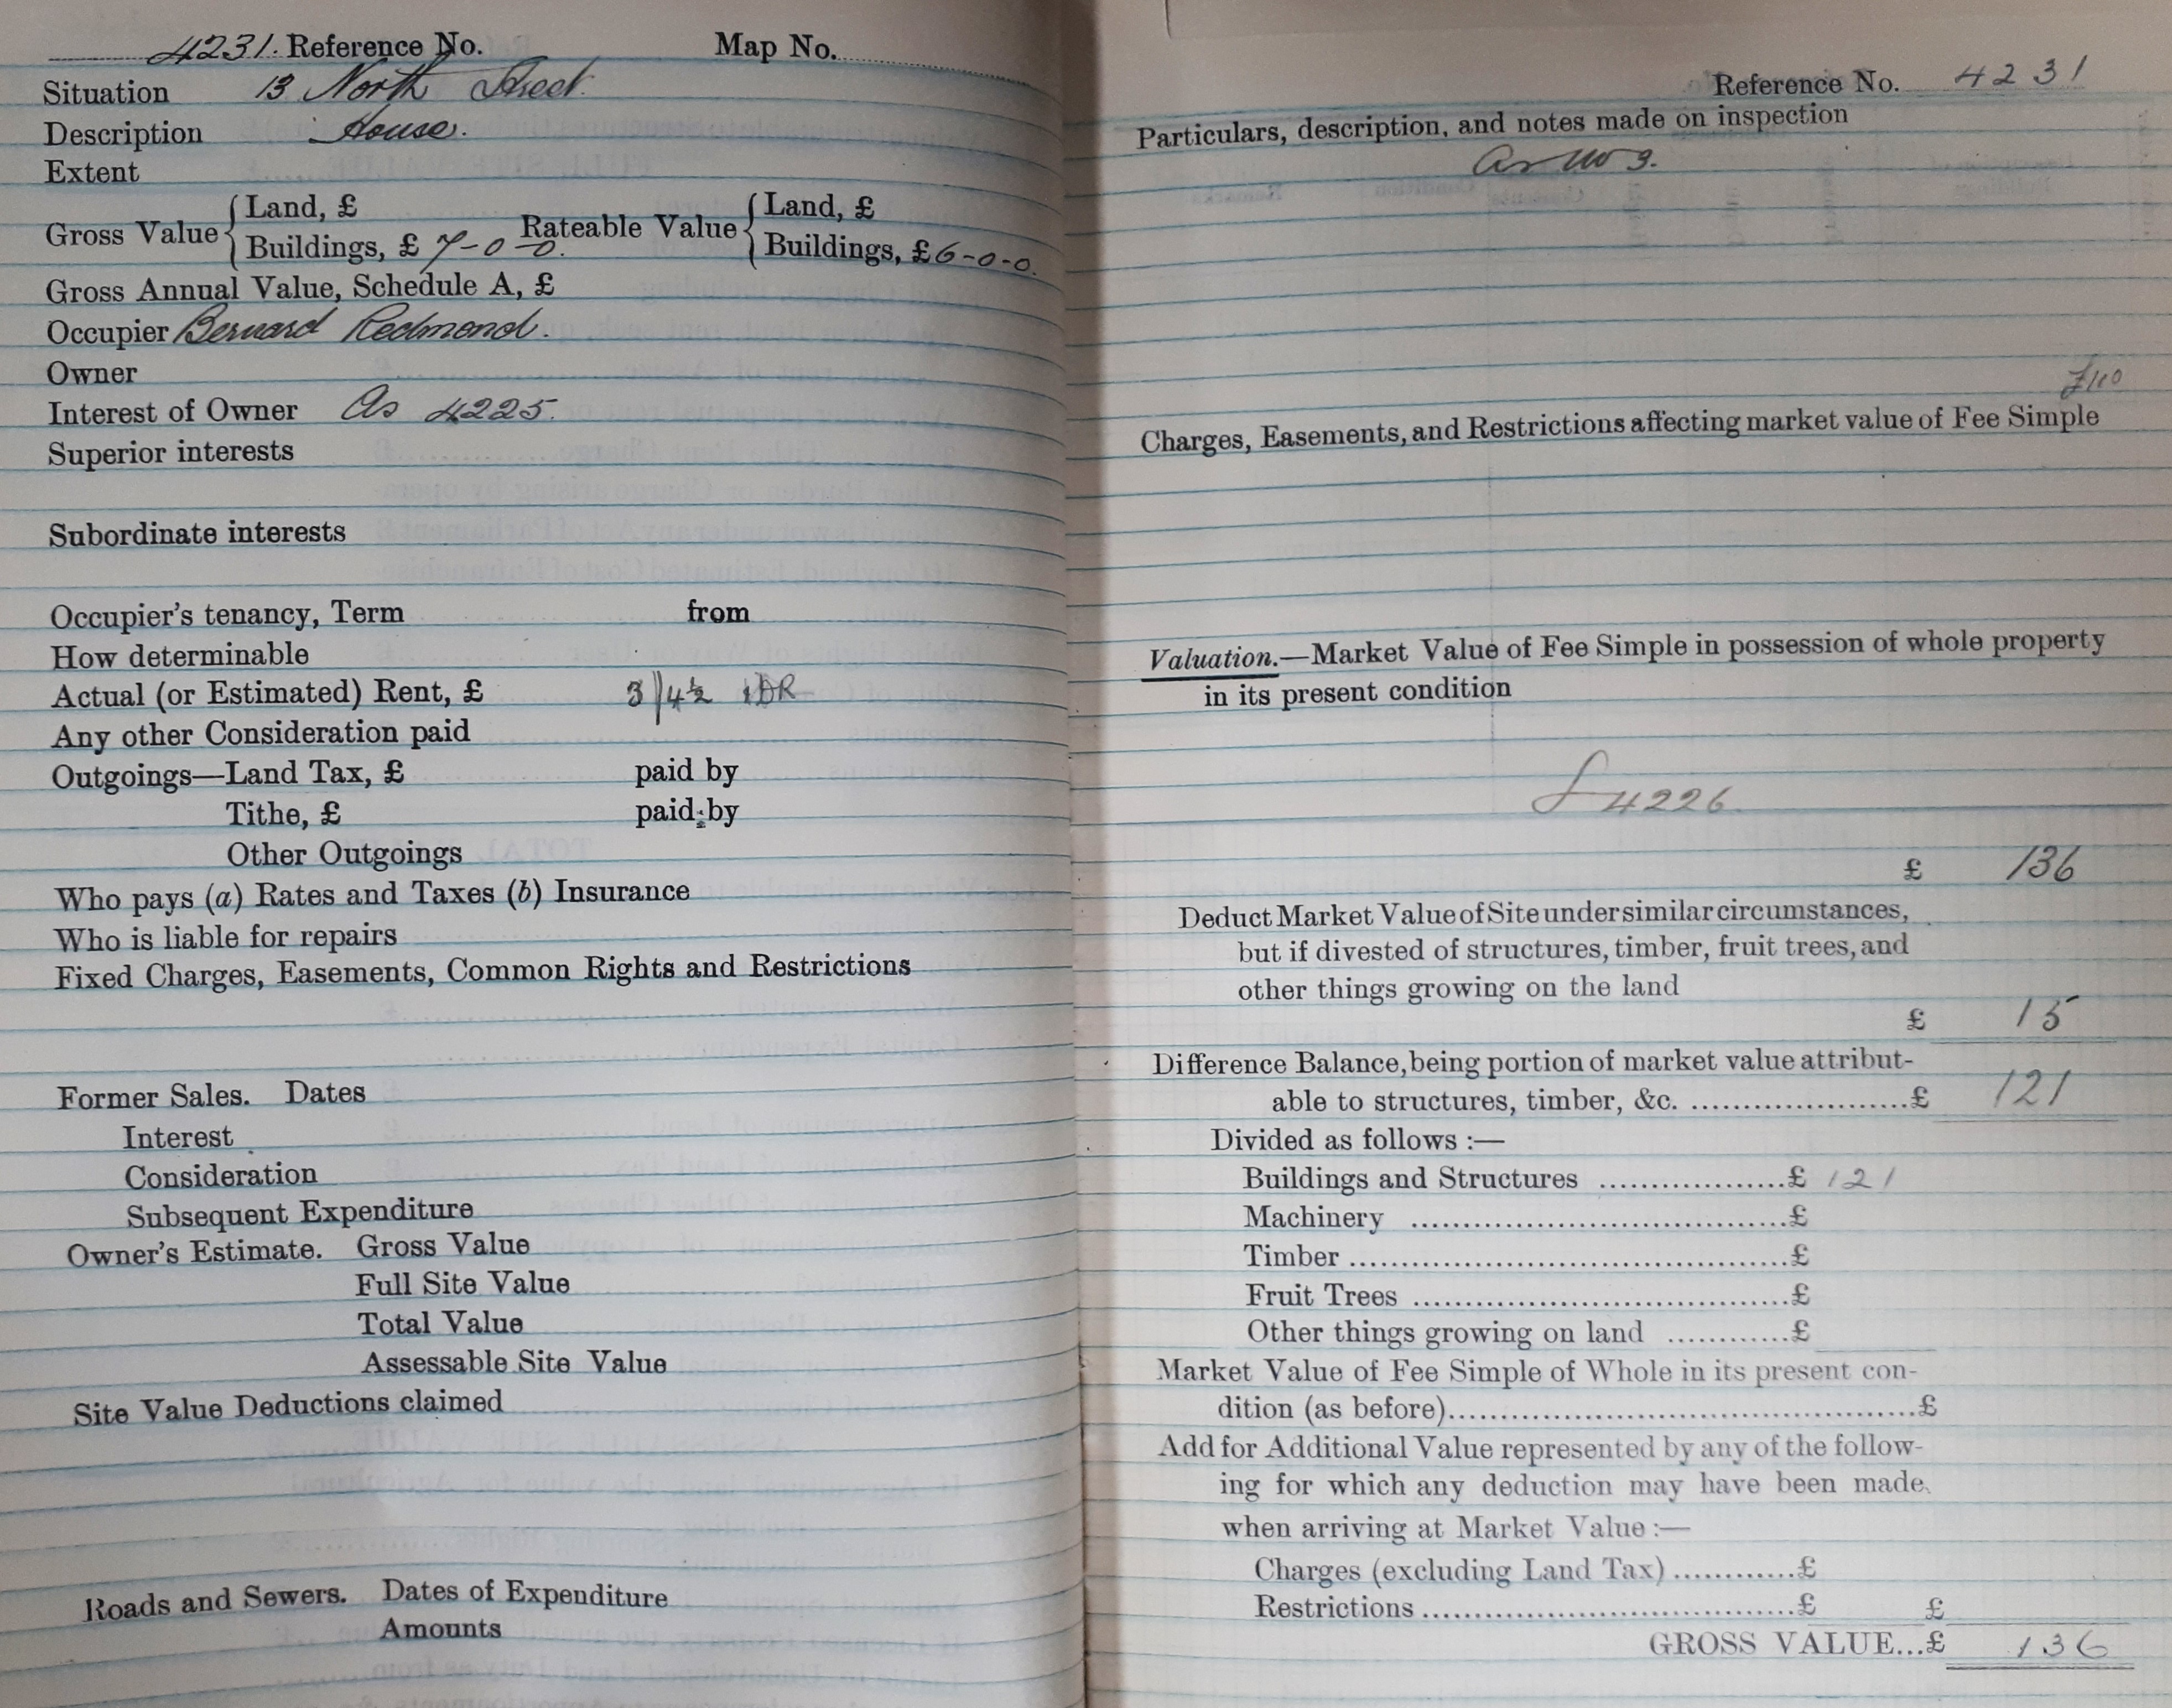 4231. Reference No. Map No.
Situation 13 North Street.
Description House.
Extent
Gross Value { Land, £ Rateable Value { Land, £
Buildings, £ 7-0-0. Buildings, £ 6-0-0.
Gross Annual Value, Schedule A, £
Occupier Bernard Redmond.
Owner
Interest of Owner As 4225.
Superior interests
Subordinate interests
Occupier's tenancy, Term from
How determinable
Actual (or Estimated) Rent, £ 3/4½
Any other Consideration paid
Outgoings—Land Tax, £ paid by
Tithe, £ paid by
Other Outgoings
Who pays (a) Rates and Taxes (b) Insurance
Who is liable for repairs
Fixed Charges, Easements, Common Rights and Restrictions
Former Sales. Dates
Interest
Consideration
Subsequent Expenditure
Owner's Estimate. Gross Value
Full Site Value
Total Value
Assessable Site Value
Site Value Deductions claimed
Roads and Sewers. Dates of Expenditure
Amounts
Reference No. 4231
Particulars, description, and notes made on inspection
As No 9.
£110
Charges, Easements, and Restrictions affecting market value of Fee Simple
Valuation.—Market Value of Fee Simple in possession of whole property
in its present condition
4226
£ 136
Deduct Market Value of Site under similar circumstances,
but if divested of structures, timber, fruit trees, and
other things growing on the land
£ 15
Difference Balance, being portion of market value attribut-
able to structures, timber, &c. ....................£ 121
Divided as follows :—
Buildings and Structures ..................£ 121
Machinery ....................................£
Timber..........................................£
Fruit Trees ....................................£
Other things growing on land ............£
Market Value of Fee Simple of Whole in its present con-
dition (as before)..............................................£
Add for Additional Value represented by any of the follow-
ing for which any deduction may have been made
when arriving at Market Value :—
Charges (excluding Land Tax) ............£
Restrictions ....................................£ £
GROSS VALUE...£ 136